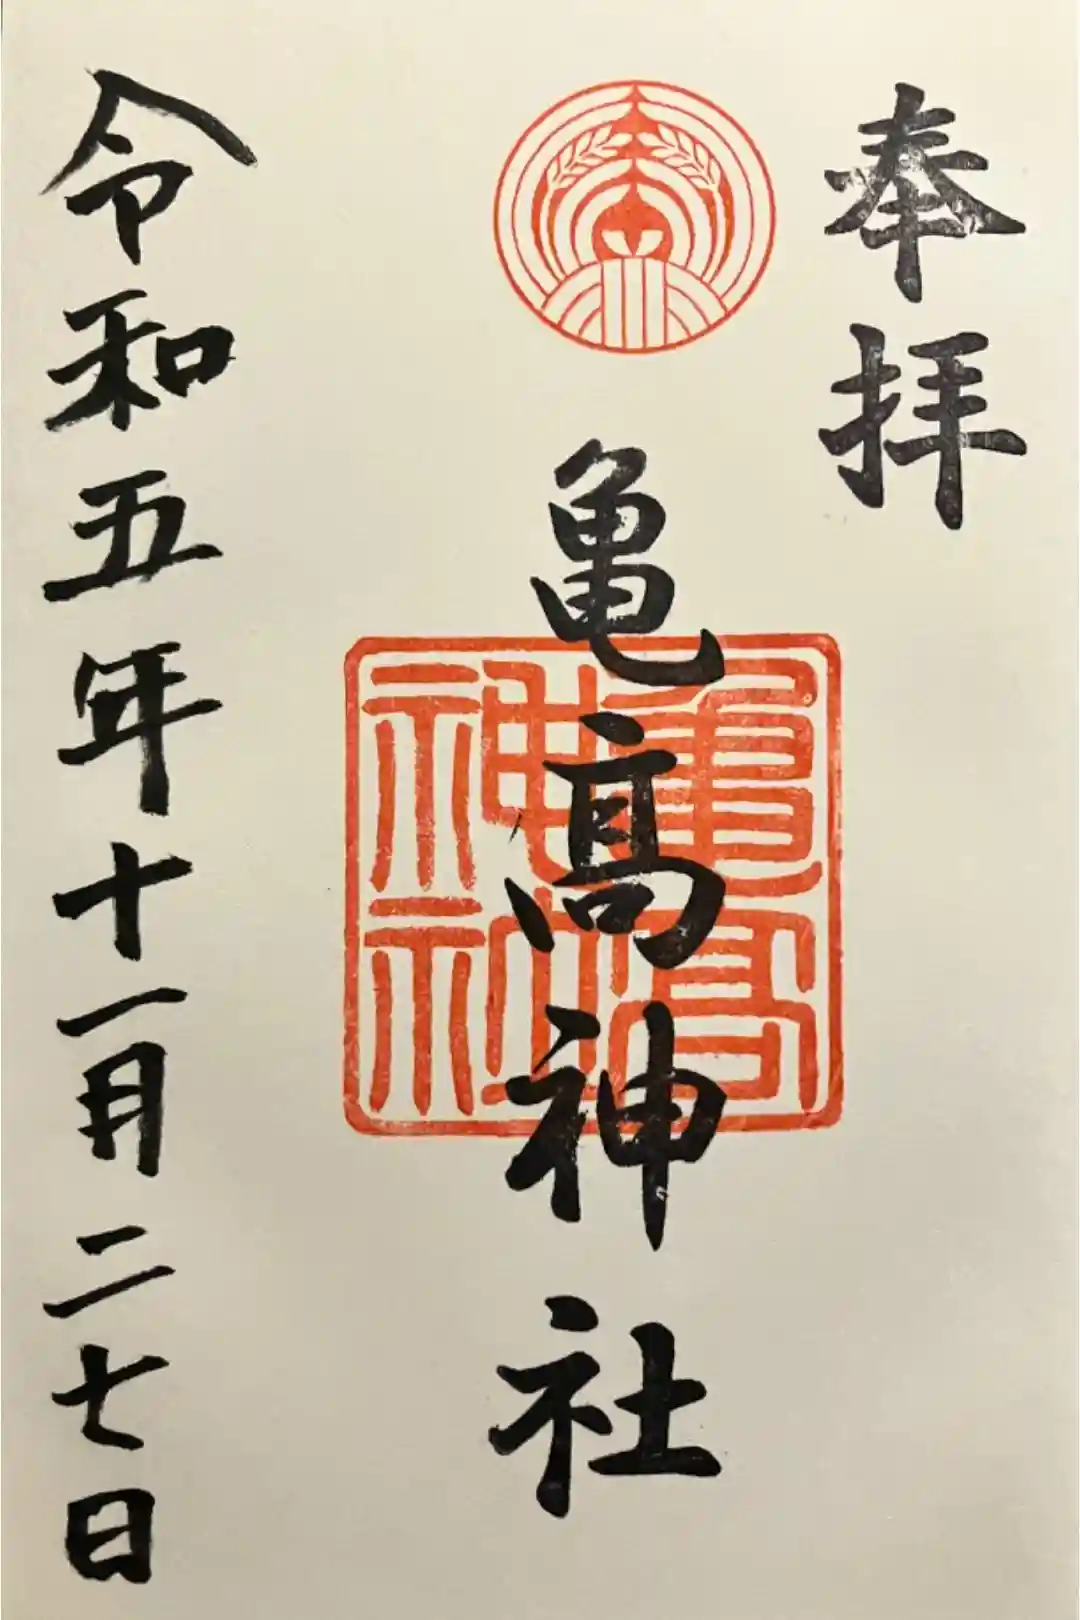 奉拝
亀髙神社
亀髙神社
令和五年十一月二七日